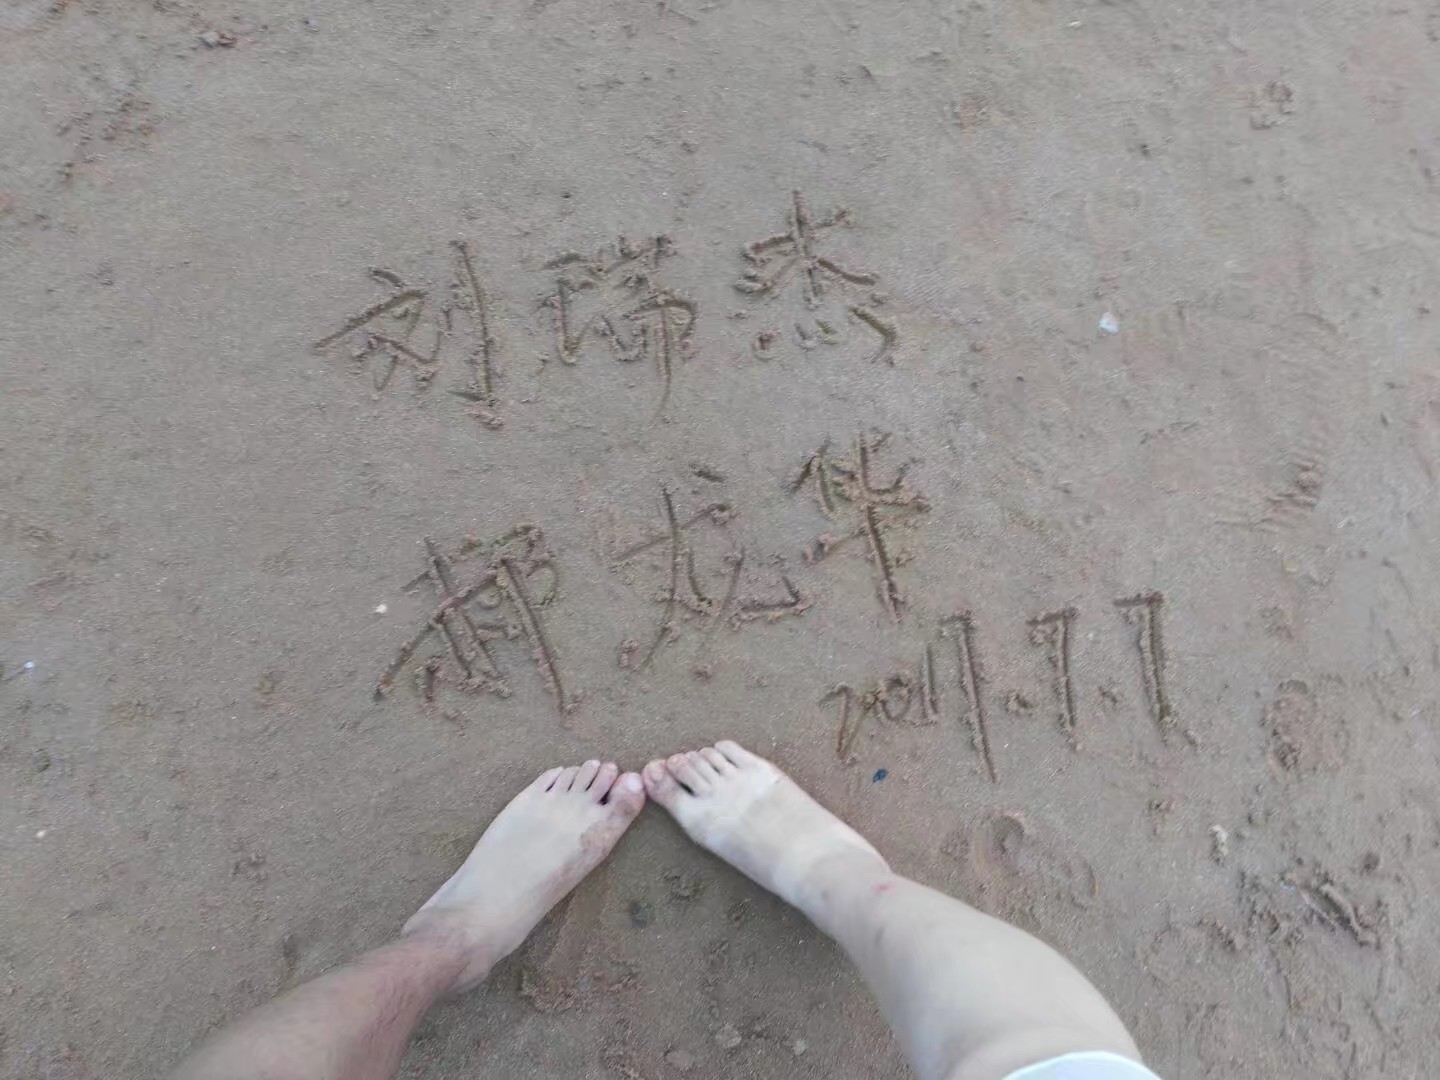 刘瑞杰
龙华
2017.7.7